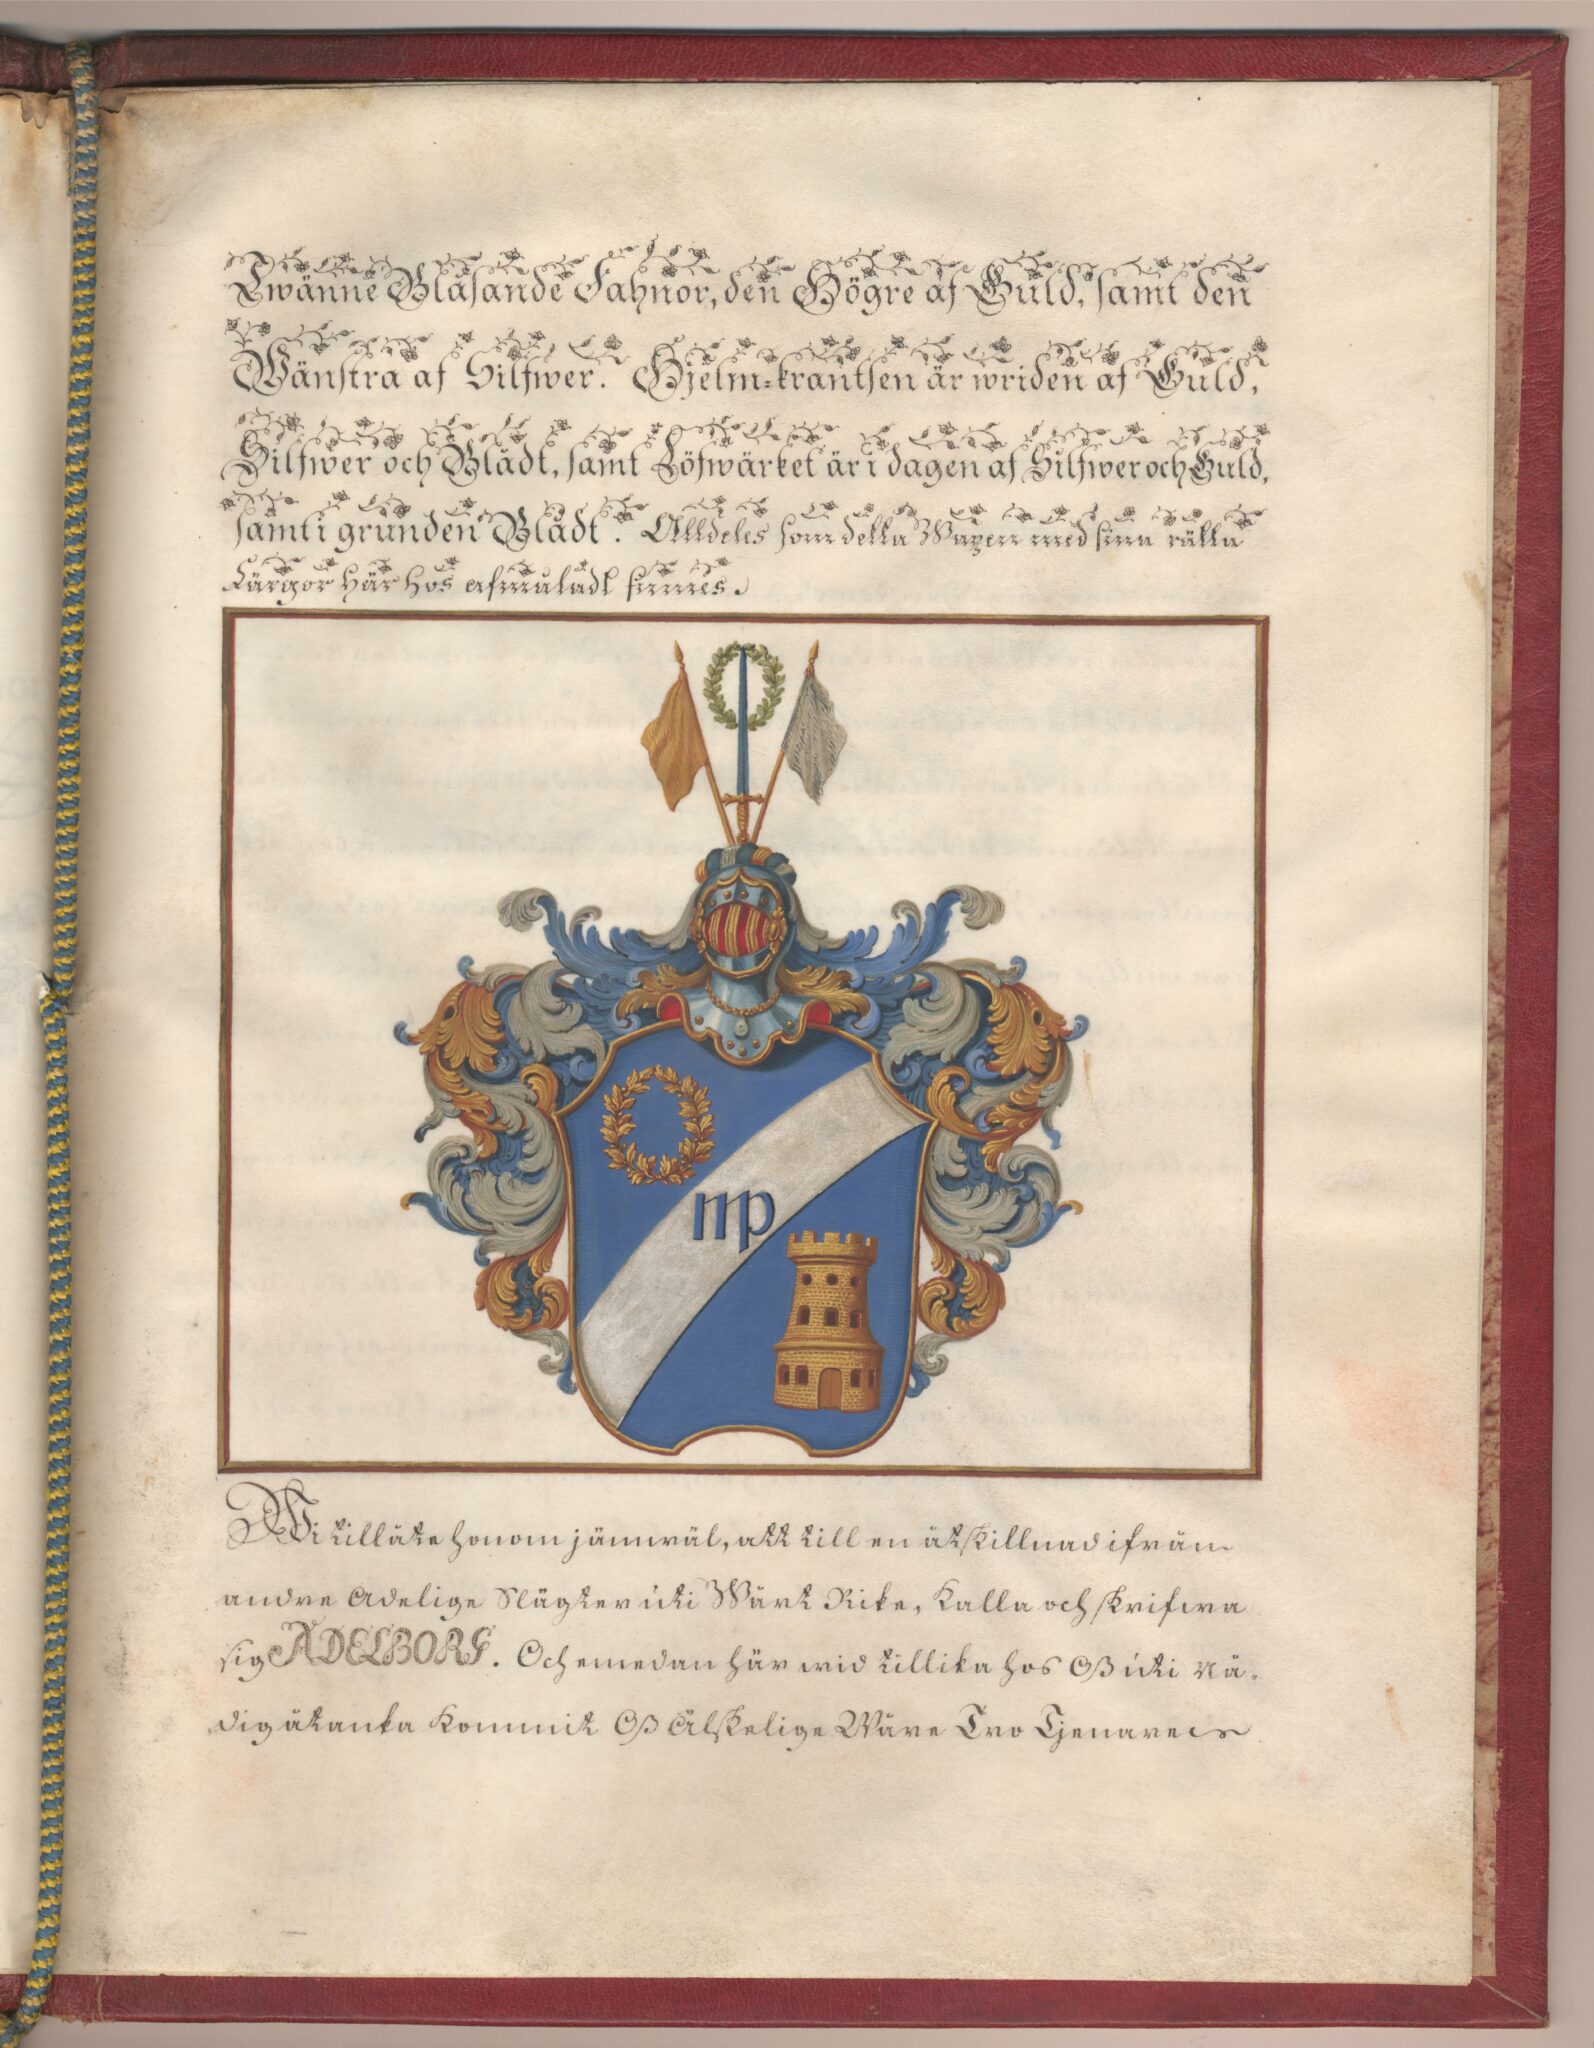 Twänne Blåsande Fahnor, den Högre af Guld, samt den
Wänstra af Silfwer. Hjelm-krantsen är wriden af Guld,
Silfwer och Blådt, samt Löfwärket är i dagen af Silfwer och Guld,
samt i grunden Blådt. Alldeles som detta Wapen med sina rätta
Färgor här hos afmåladt finnes.
mp
Wi tillåte honom jämwäl, att till en åtskillnad ifrån
andre Adelige Slägter uti Wårt Rike, kalla och skrifwa
sig ADELBORG. Och emedan här wid tillika hos Oß uti Nå-
dig åtanka kommit Oß Älskelige Wåre Tro Tjenares